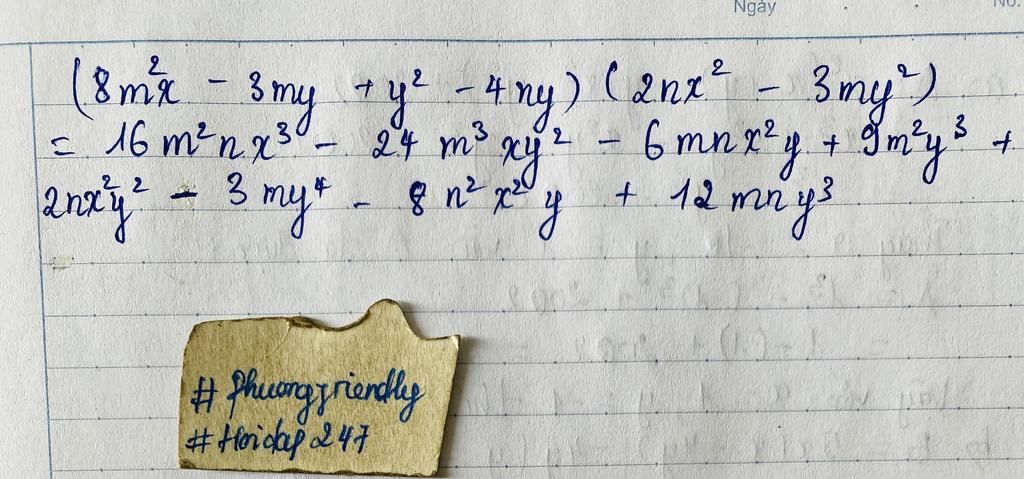 Ngày
No.
(8m²x - 3my + y² - 4ny) (2nx² - 3my²)
= 16 m²nx³ - 24 m³xy² - 6mnx²y + 9m²y³ +
2nx²y² - 3my⁴ - 8n²x²y + 12mny³
# Phuongfriendly
# Hoidap247